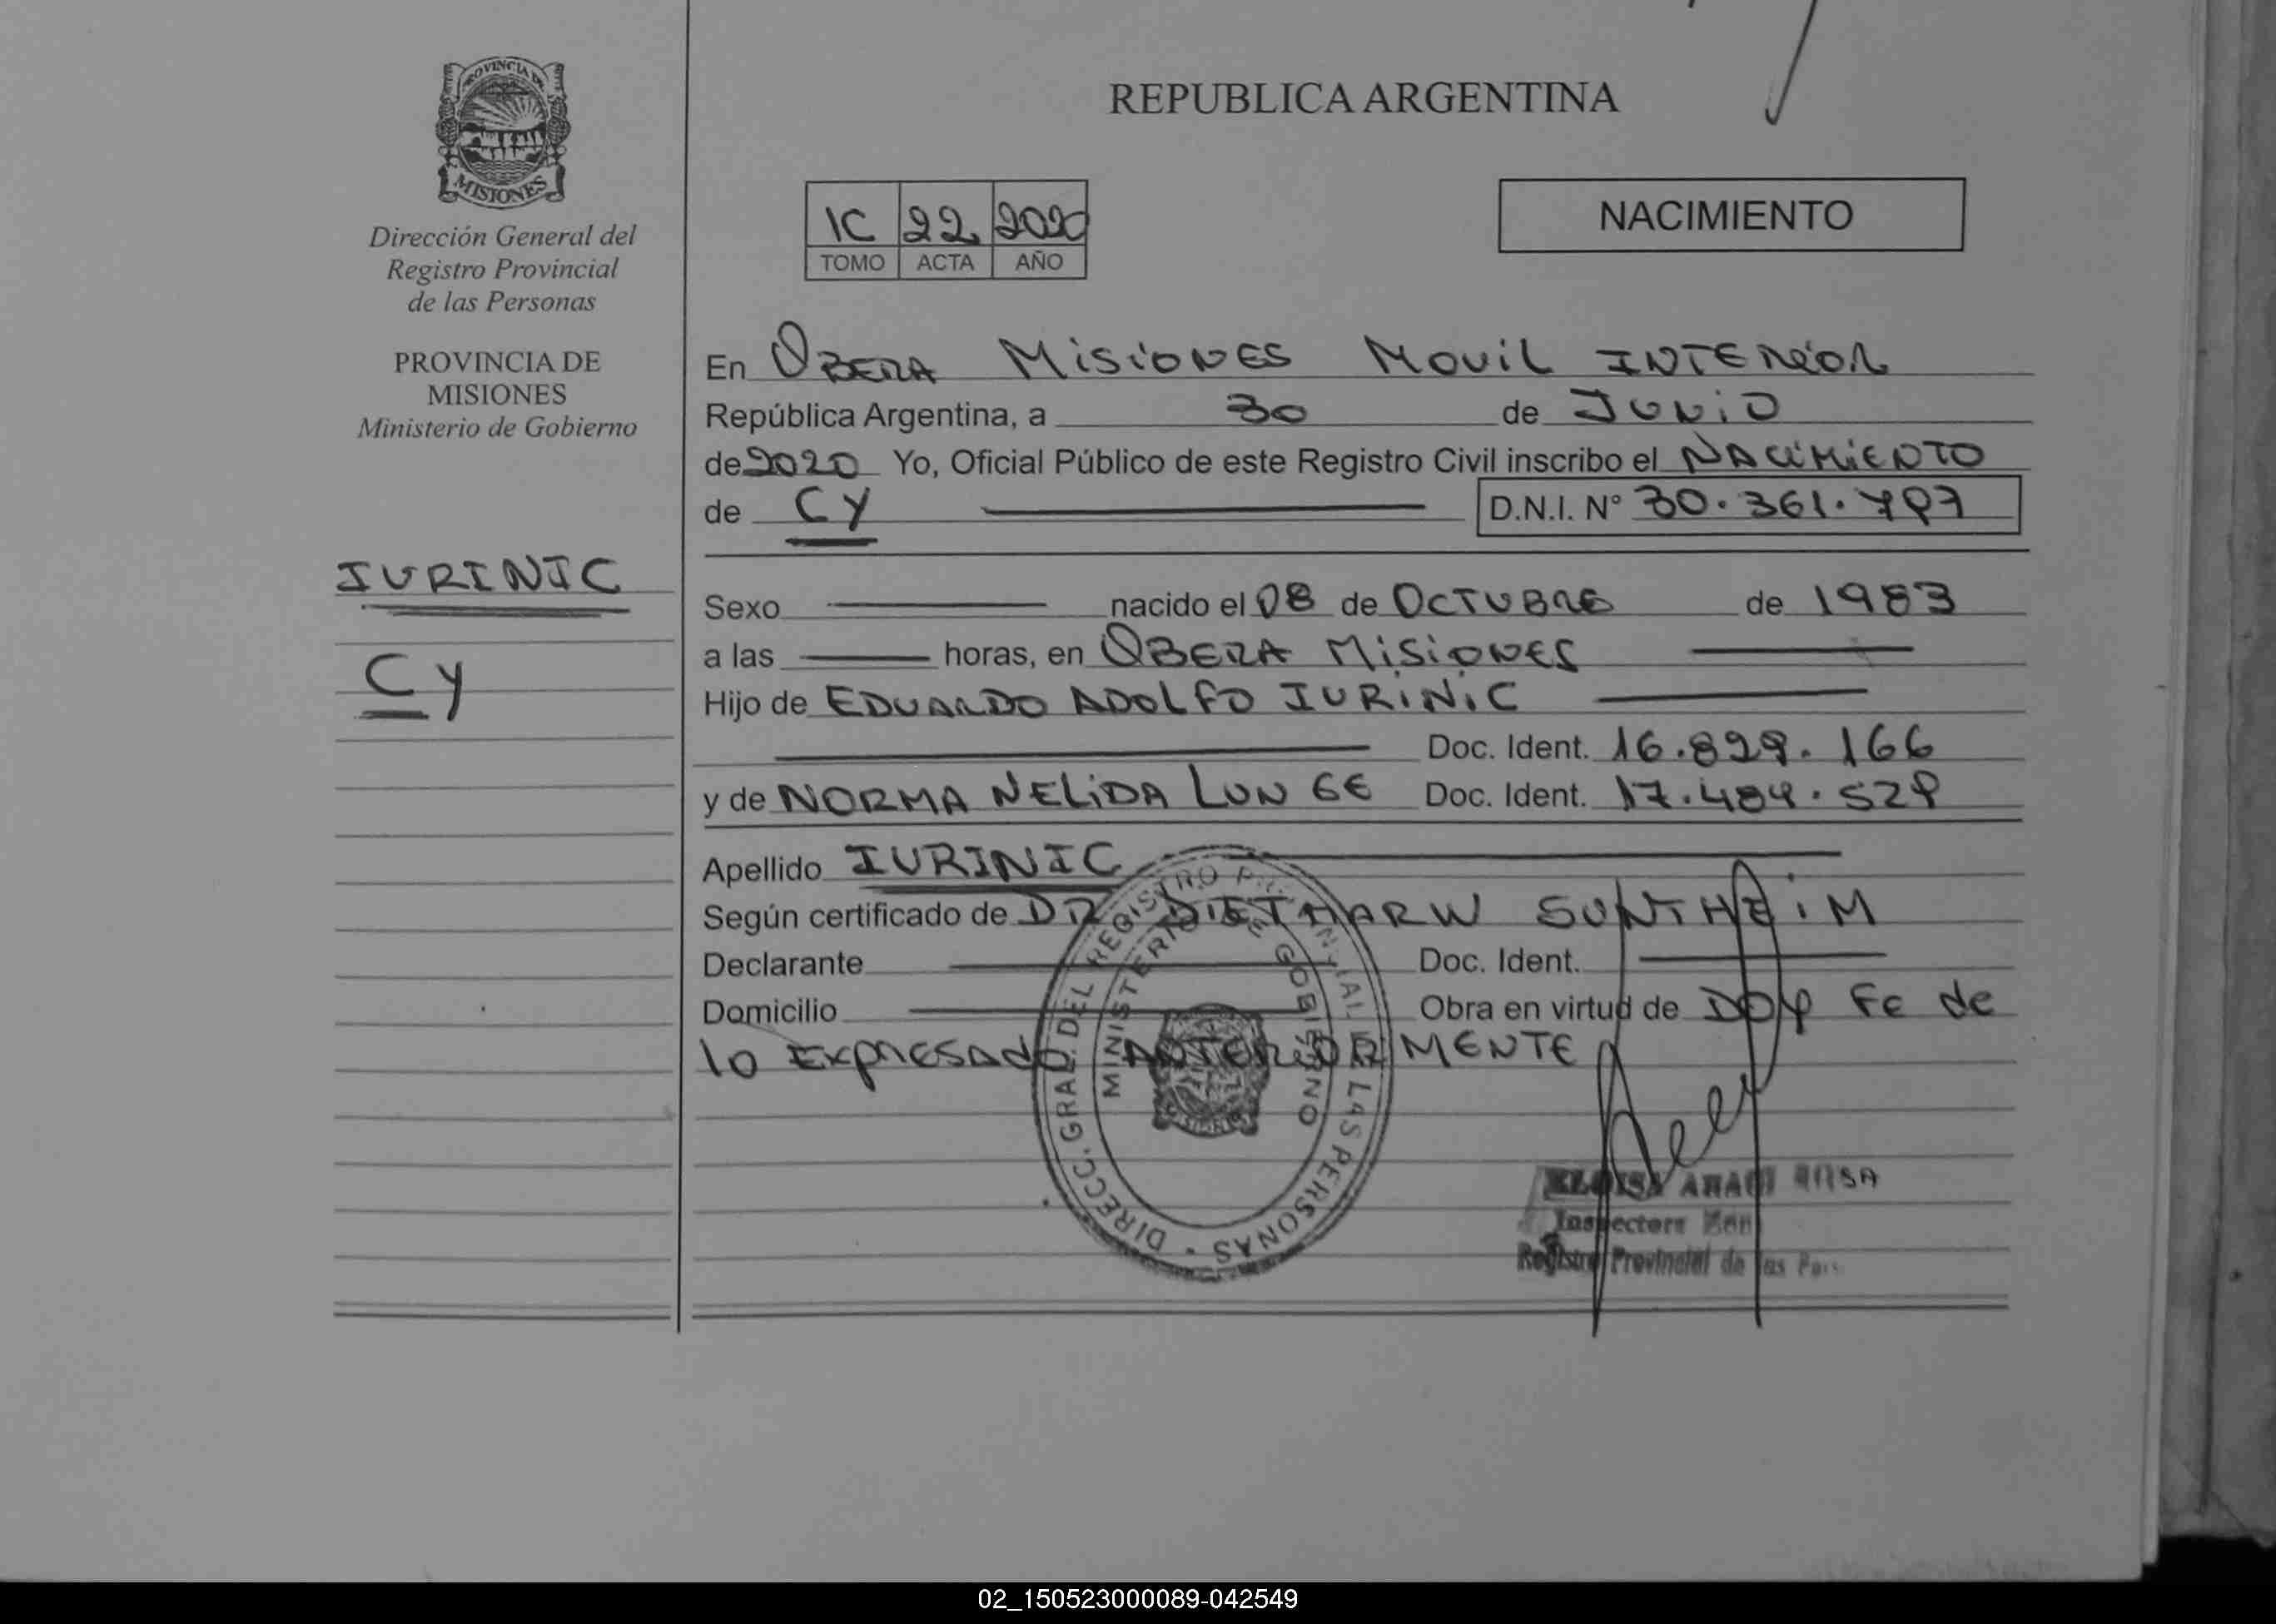 REPUBLICA ARGENTINA
PROVINCIA DE
MISIONES
Dirección General del
Registro Provincial
de las Personas
PROVINCIA DE
MISIONES
Ministerio de Gobierno
IURINIC
Cy
IC 22 2020
TOMO ACTA AÑO
NACIMIENTO
En OBERA MisiONES MOVIL INTERIOR
República Argentina, a 30 de JUNiO
de 2020 Yo, Oficial Público de este Registro Civil inscribo el NACiMiENTO
de CY D.N.I. N° 30.361.797
Sexo nacido el 08 de OCTUBRE de 1983
a las horas, en OBERA MiSiONES
Hijo de EDUARDO ADOLFO IURINiC
Doc. Ident. 16.829.166
y de NORMA NELiDA LUNGE Doc. Ident. 17.484.529
Apellido IURINIC
Según certificado de DR DIETHARW SUNTHEiM
Declarante Doc. Ident.
Domicilio Obra en virtud de DOY Fe de
lo EXPRESADO ANTERIORMENTE
DIRECC. GRAL. DEL REGISTRO PROVINCIAL DE LAS PERSONAS
MINISTERIO DE GOBIERNO
ELOISA ROSA
Inspectora
Registro Provincial de las
02_150523000089-042549